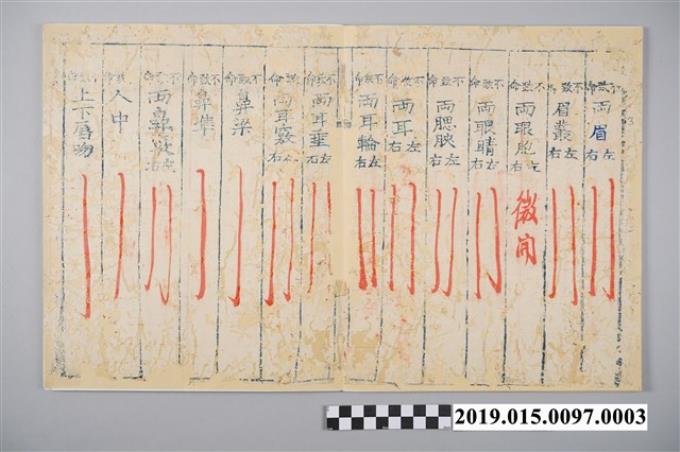 不致命 兩眉 左右
不致命 眉叢 左右
不致命 兩眼胞 左右 微開
不致命 兩眼睛 左右
不致命 兩腮脥 左右
不致命 兩耳 左右
不致命 兩耳輪 左右
不致命 兩耳垂 左右
致命 兩耳竅 左右
不致命 鼻梁
不致命 鼻準
不致命 兩鼻竅 左右
不致命 人中
不致命 上下唇吻
2019.015.0097.0003